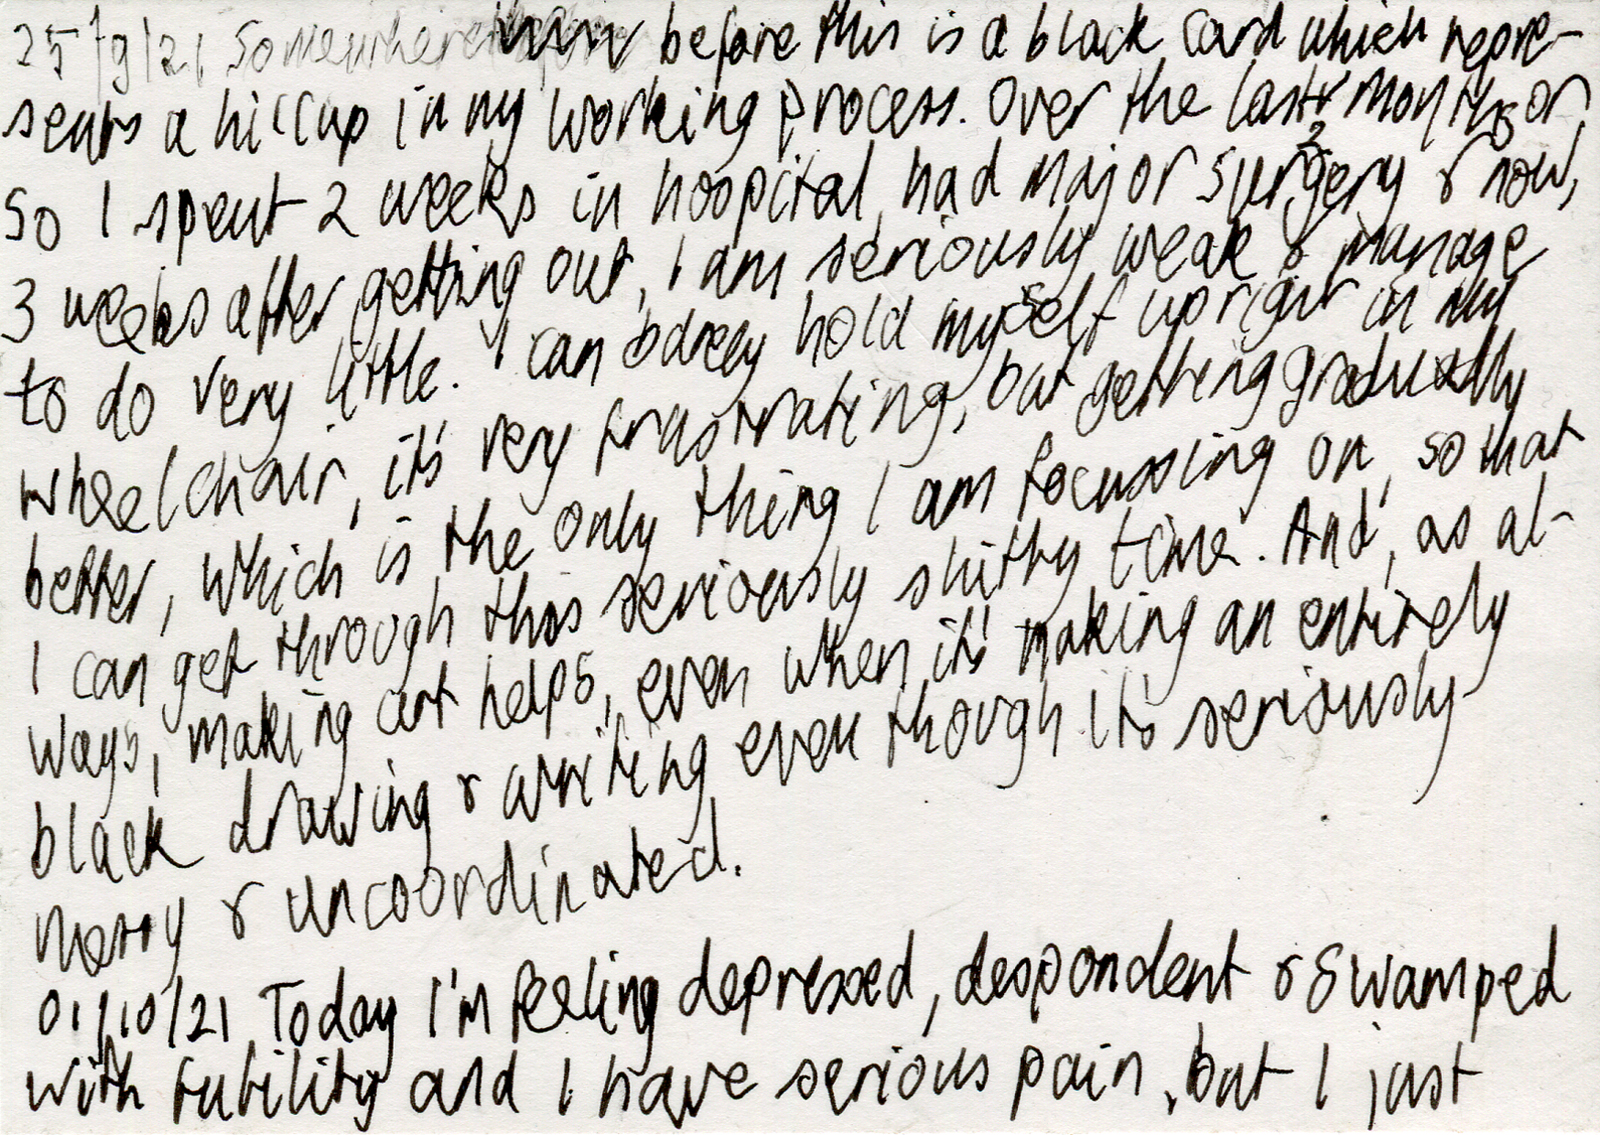 25/9/21 Somewhere before this is a black card which repre-
sents a hiccup in my working process. Over the last 2 months or
so I spent 2 weeks in hospital, had major surgery & now,
3 weeks after getting out, I am seriously weak & manage
to do very little. I can barely hold myself upright in my
wheelchair, it's very frustrating, but getting gradually
better, which is the only thing I am focussing on, so that
I can get through this seriously shitty time. And, as al-
ways, making art helps, even when it's making an entirely
black drawing & writing even though it's seriously
messy & uncoordinated.
01/10/21 Today I'm feeling depressed, despondent & swamped
with futility and I have serious pain, but I just